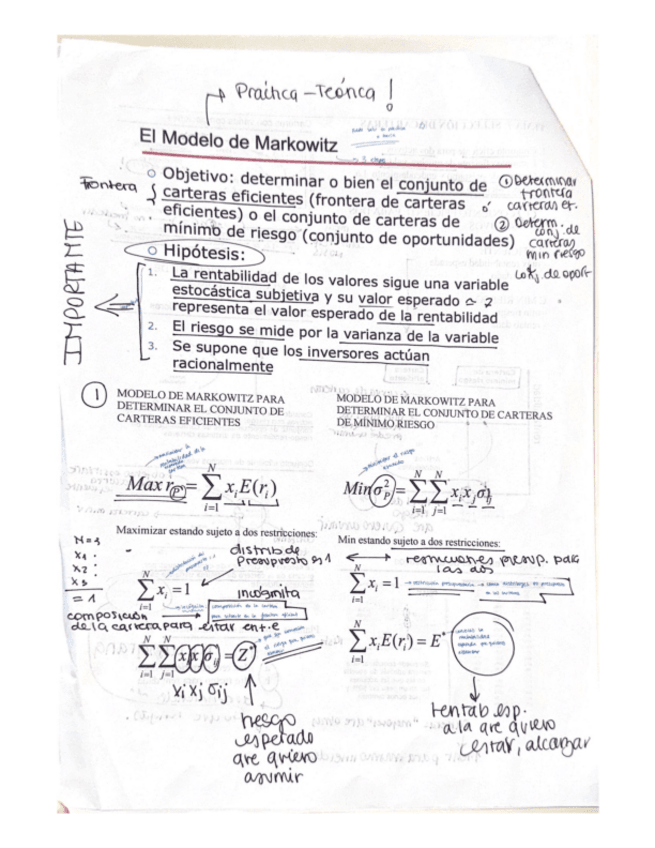 Práctica - Teórica!
El Modelo de Markowitz
Frontera
Objetivo: determinar o bien el conjunto de
carteras eficientes (frontera de carteras
eficientes) o el conjunto de carteras de
mínimo de riesgo (conjunto de oportunidades)
① Determinar
frontera
carteras ef.
② Determ.
conj. de
carteras
min riesgo
IMPORTANTE
Hipótesis:
1. La rentabilidad de los valores sigue una variable
estocástica subjetiva y su valor esperado
representa el valor esperado de la rentabilidad
2. El riesgo se mide por la varianza de la variable
3. Se supone que los inversores actúan
racionalmente
①
MODELO DE MARKOWITZ PARA
DETERMINAR EL CONJUNTO DE
CARTERAS EFICIENTES
Max r_P = Σ_{i=1}^{N} x_i E(r_i)
Maximizar estando sujeto a dos restricciones:
distrib de
presupuesto
N=3
x1
x2
x3
= 1
Σ_{i=1}^{N} x_i = 1
incógnita
composición
de la cartera para estar en f.e
Σ_{i=1}^{N} Σ_{j=1}^{N} x_i x_j σ_ij = Z*
xi xj σij
riesgo
esperado
que quiero
asumir
MODELO DE MARKOWITZ PARA
DETERMINAR EL CONJUNTO DE CARTERAS
DE MÍNIMO RIESGO
Min σ²_P = Σ_{i=1}^{N} Σ_{j=1}^{N} x_i x_j σ_ij
Min estando sujeto a dos restricciones:
restricciones presup. para
las dos
Σ_{i=1}^{N} x_i = 1
Σ_{i=1}^{N} x_i E(r_i) = E*
rentab esp.
a la que quiero
estar, alcanzar